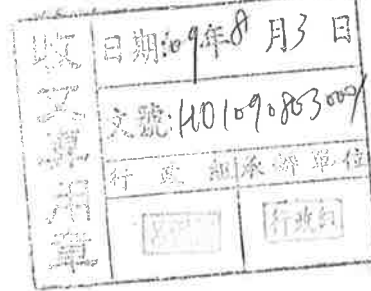 收文專用章
日期:109年8月3日
文號:H010908030001
行政組 承辦單位
行政組